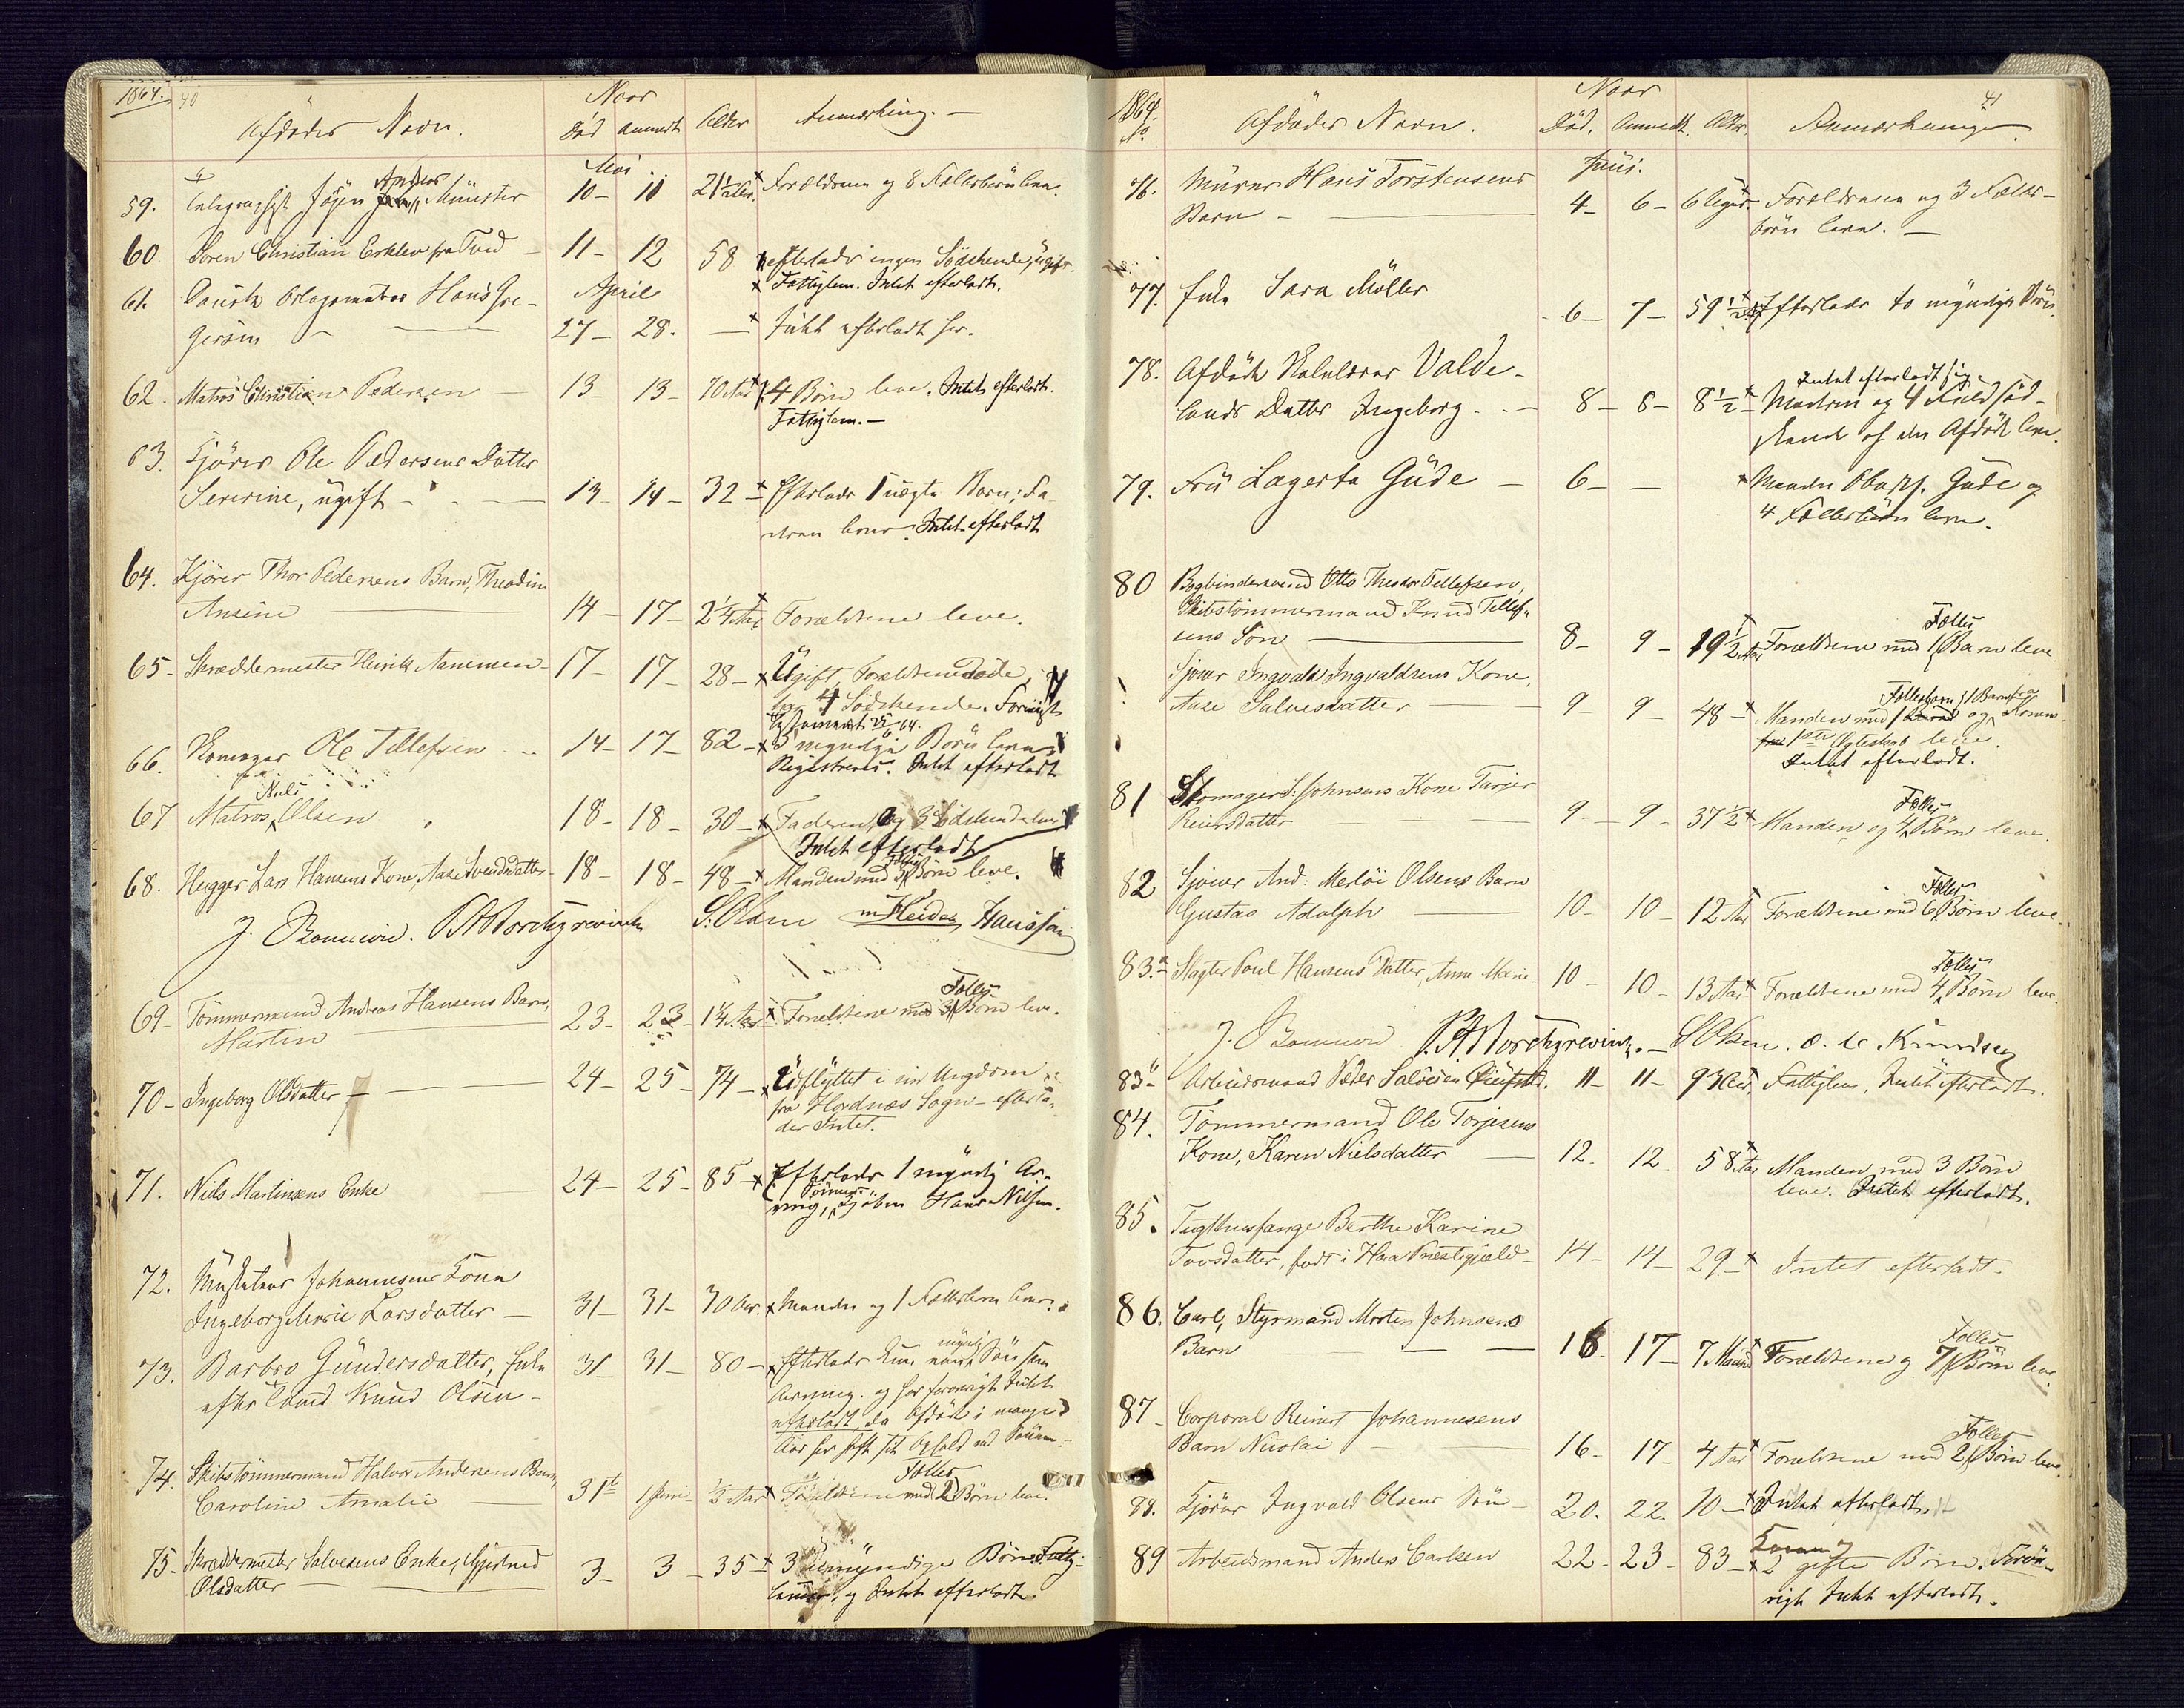 1864. 40
Naar
Afdødes Navn.
Død anmeldt Alder Anmærkning. —
Mai
59. Jögen Anders Münster 10 – 11 21½ Aar. Forældrene og 8 Fællesbørn leve.
60 Søren Christian fra Tved – 11 – 12 58 efterlader ingen Sødskende, ugift.
Fattiglem. Intet efterladt.
61. Dansk Orlogsmatros Hans Gre- April
gersen – 27 – 28. — Intet efterladt her.
62. Matros Christian Pedersen — 13 – 13 – 70 Aar 4 Børn leve. Intet efterladt.
Fattiglem. —
63. Kjører Ole Pedersens Datter
Severine, ugift – 13 – 14 – 32 – Efterlader 1 uægte Barn; Fa-
deren lever. Intet efterladt
64. Kjører Thor Pedersens Barn, Theodine
Ansine — 14 – 17 – 2¼ Aar. Forældrene leve.
65 – Skræddermester Henrik Aanensen – 17 – 17 – 28 – Ugift, Forældrene døde,
4 Sødskende.
Testament
66. Ole Tellefsen 14 – 17 – 82 – 3 myndige Børn leve.
Registreres. Intet efterladt
Niels
67 Matros Olsen 18 – 18 – 30 – Faderen, og 3 Sødskende leve
Intet efterladt
68. Hugger Lars Hansens Kone, Aase Svendsdatter – 18 – 18 – 48 – Manden med 3 Fælles Børn leve.
S. Olsen Hanssen
Fælles
69 – Tømmermand Andreas Hansens Barn,
Martin 23 – 23 – 1¼ Aar – Forældrene med 3 Børn leve.
70 – Ingeborg Olsdatter — 24 – 25 – 74 – Udflyttet i sin Ungdom
fra Hordnæs Sogn – efterla-
der Intet.
71. Niels Martinsens Enke 24 – 25 – 85 – Efterlader 1 myndig Ar-
ving, Sønnen Hans Nilsen.
72. Johannesens Kone
Ingeborg Marie Larsdatter — 31 – 31 – 30 Aar. Manden og 1 Fællesbarn lever.
73. Barbro Gundersdatter, Enke
efter Knud Olsen – 31 – 31 – 80 – Efterlader kun myndig Søn som
Arving. og har forøvrigt Intet
efterladt, da Afdøde i mange
Aar har havt sit Ophold ved Sønnen.
Fælles
74. Skibstømmermand Halvor Andersens Barn,
Caroline Amalie 31te 1 Juni – ½ Aar Forældrene med 2 Børn leve
75 – Skræddermester Salvesens Enke, Gjertrud
Olsdatter — 3 – 3 – 35 – 3 umyndige Børn. Fattig-
lem, og Intet efterladt
1864. 41
No. Afdødes Navn. Naar
Død. Anmeldt. Alder. Anmærkninger
Juni.
76. Murer Hans Torstensens
Barn — 4 – 6 – 6 Uger – Forældrene og 3 Fælles-
børn leve. —
77. Enke Sara Møller – 6 – 7 – 59½ Efterlader to myndige Børn.
78. Afdøde Valde-
lands Datter Ingeborg. – 8 – 8 – 8½ – Intet efterladt sig.
Moderen og 4 Fuldsød-
skende af den Afdøde leve.
79. Frü Lagerta Güde — 6 – — Manden Gude og
4 Fællesbørn leve.
80 Bogbindersvend Otto Theodor Tellefsen,
Skibstømmermand Knud Tellef-
sens Søn — 8 – 9 – 19½ Aar Forældrene med 1 Fælles Barn leve
Sjøver Ingvald Ingvaldsens Kone,
Aase Salvesdatter — 9 – 9 – 48 – Manden med 1 Fællesbarn og 1 Barn fra Konens
1ste Ægteskab leve.
Intet efterladt.
81 Skomager S. Johnsens Kone Turjer
Reiersdatter — 9 – 9 – 37½ Manden og 4 Fælles Børn leve.
82 Sjøver And: Merløi Olsens Barn
Gustav Adolph — 10 – 10 – 12 Aar Forældrene med 6 Fælles Børn leve.
83.a Slagter Poul Hansens Datter, Anne Marie – 10 – 10 – 13 Aar Forældrene med 4 Fælles Børn leve.
S Olsen. Knudsen
83b – Arbeidsmand Peder Salvesen 11 – 11 – Fattiglem, Intet efterladt.
84. Tømmermand Ole Torjesens
Kone, Karen Nielsdatter — 12. 12 58 Aar Manden med 3 Børn
leve. Intet efterladt.
85. Tugthusfange Berthe Karine
Tovsdatter, født i Haa Præstegjæld – 14 – 14 – 29 – Intet efterladt –
86. Carl, Styrmand Morten Johnsens
Barn — 16 17 – 7 Maaned Forældrene og 7 Fælles Børn leve.
87 – Corporal Reinert Johannesens
Barn Nicolai — 16 – 17 – 4 Aar Forældrene med 2 Fælles Børn leve.
88. Kjører Ingvald Olsens Søn – 20. 22. 10 – Intet efterladt
89 Arbeidsmand Anders Carlsen 22 – 23 – 83 – Konen og
2 gifte Børn. Forøv-
rigt Intet efterladt.